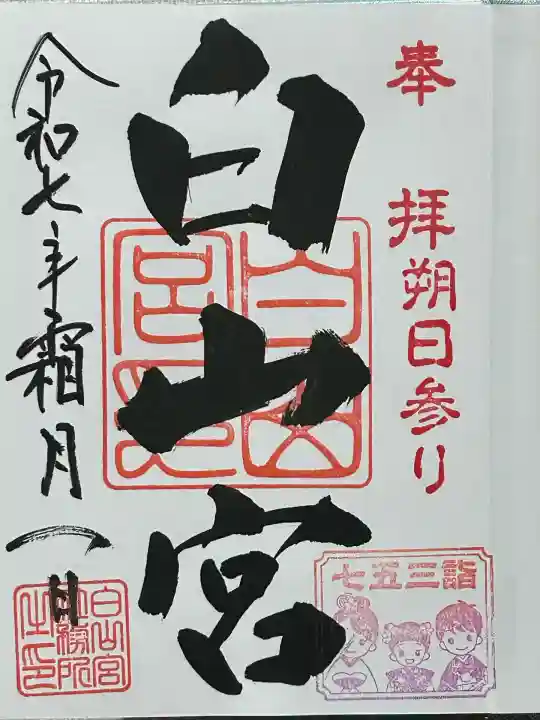 奉拝
朔日参り
白山宮
白山宮印
令和七年霜月一日
白山宮
社務所
之印
七五三詣